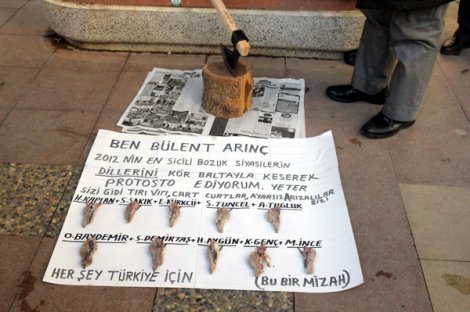 BEN BÜLENT ARINÇ
2012 NİN EN SİCİLİ BOZUK SİYASİLERİN
DİLLERİNİ KÖR BALTAYLA KESEREK
PROTOSTO EDİYORUM. YETER
SİZİ GİDİ TIRI VIRI, CART CURTLAR, AYARSIZ ARIZALILAR SİZİ
H.KAPLAN+S.SAKIK+E.KÜRKÇÜ+S.TUNCEL+A.TUĞLUK
O.BAYDEMİR+S.DEMİRTAŞ+H.AYGÜN+K.GENÇ+M.İNCE
HER ŞEY TÜRKİYE İÇİN (BU BİR MİZAH)